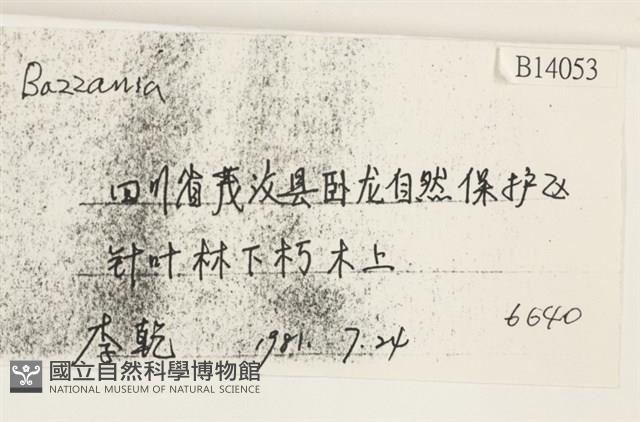 B14053
Bazzania
四川省茂汶县卧龙自然保护区
针叶林下朽木上
6640
李乾 1981. 7. 24
國立自然科學博物館
NATIONAL MUSEUM OF NATURAL SCIENCE